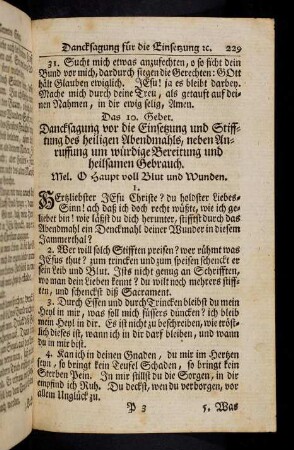 Dancksagung für die Einsetzung ⁊c. 229
31. Sucht mich etwas anzufechten, o so ficht dein
Bund vor mich, dardurch siegen die Gerechten: GOtt
hält Glauben ewiglich. JEsu! ja es bleibt darbey.
Mache mich durch deine Treu, als getauft auf dei-
nen Nahmen, in dir ewig selig, Amen.
Das 10. Gebet.
Dancksagung vor die Einsetzung und Stiff-
tung des heiligen Abendmahls, neben An-
ruffung um würdige Bereitung und
heilsamen Gebrauch.
Mel. O Haupt voll Blut und Wunden.
1.
Hertzliebster JEsu Christe? du holdster Liebes-
Sinn! ach daß ich doch recht wüßte, wie ich ge-
liebet bin! wie läßst du dich herunter, stifftst durch das
Abendmahl ein Denckmahl deiner Wunder in diesem
Jammerthal?
2. Wer will solch Stifften preisen? wer rühmt was
JEsus thut? zum trincken und zum speisen schenckt er
sein Leib und Blut. Ists nicht genug an Schrifften,
wo man dein Lieben kennt? du wilt noch mehrers stiff-
ten, und schenckst diß Sacrament.
3. Durch Essen und durch Trincken bleibst du mein
Heyl in mir, was soll mich süssers düncken? ich bleib
mein Heyl in dir. Es ist nicht zu beschreiben, wie tröst-
lich dieses ist, wann ich in dir darf bleiben, und wann
du in mir bist.
4. Kan ich in deinen Gnaden, du mir im Hertzen
seyn, so bringt kein Teufel Schaden, so bringt kein
Sterben Pein. In mir stillst du die Sorgen, in dir
empfind ich Ruh. Du deckst, wen du verborgen, vor
allem Unglück zu.
P 3 5. Was